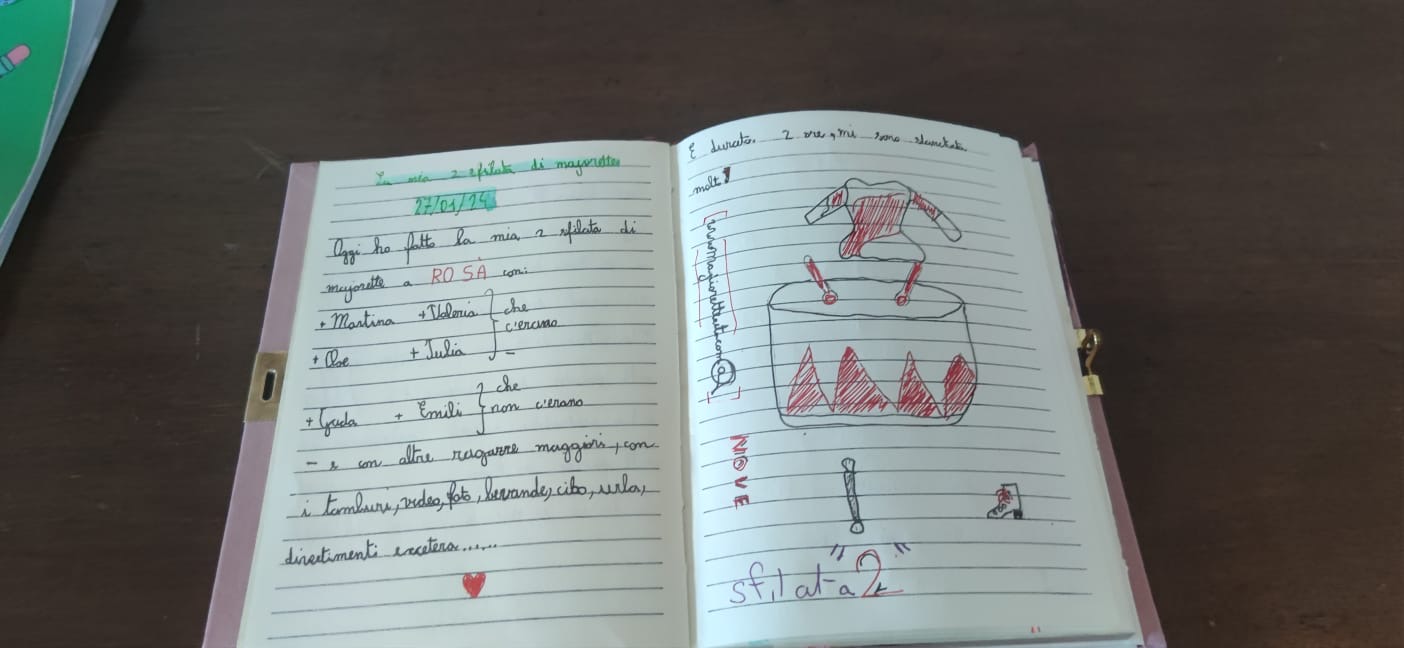 La mia 2 sfilata di majorette
27/01/24
Oggi ho fatto la mia 2 sfilata di
majorette a ROSÀ con:
+ Martina + Valeria } che
c'erano
+ Cloe + Julia -
+ Giada + Emili } che
non c'erano
- e con altre ragazze maggiori, con
i tamburi, video, foto, bevande, cibo, urla,
divertimenti excetera......
E durata 2 ore, mi sono stancata
molto!
NOVE
sfilata "2"